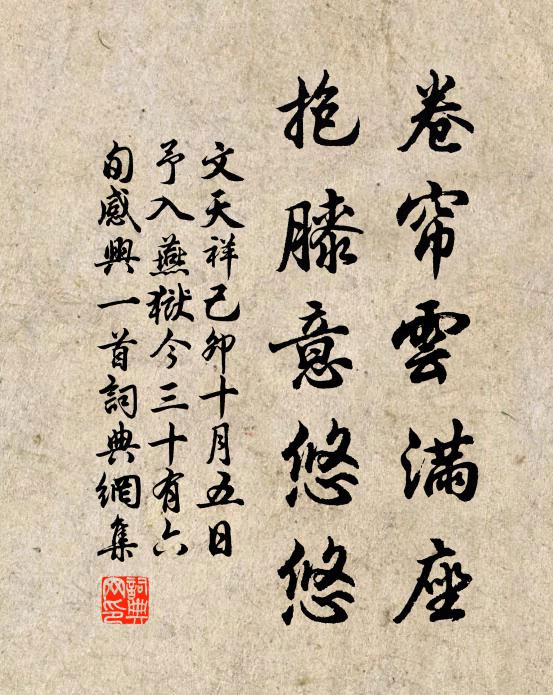 卷帘雲滿座
抱膝意悠悠
文天祥己卯十月五日
予入燕獄今三十有六
旬感興一首詞典網集
詞典
网印